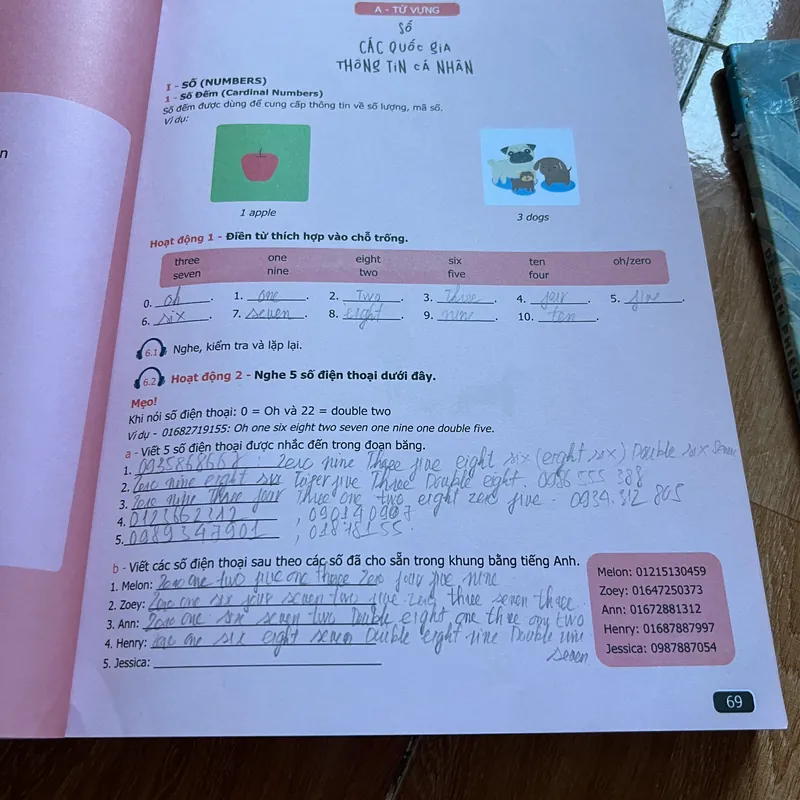 A - TỪ VỰNG
SỐ
CÁC QUỐC GIA
THÔNG TIN CÁ NHÂN
I - SỐ (NUMBERS)
1 - Số Đếm (Cardinal Numbers)
Số đếm được dùng để cung cấp thông tin về số lượng, mã số.
Ví dụ:
1 apple
3 dogs
Hoạt động 1 - Điền từ thích hợp vào chỗ trống.
three one eight six ten oh/zero
seven nine two five four
0. oh. 1. one. 2. Two. 3. three. 4. four. 5. five.
6. six. 7. seven. 8. eight. 9. nine. 10. ten.
6.1 Nghe, kiểm tra và lặp lại.
6.2 Hoạt động 2 - Nghe 5 số điện thoại dưới đây.
Mẹo!
Khi nói số điện thoại: 0 = Oh và 22 = double two
Ví dụ - 01682719155: Oh one six eight two seven one nine one double five.
a - Viết 5 số điện thoại được nhắc đến trong đoạn băng.
1. Zero nine Three five eight six (eight six) Double six seven
2. Zero nine eight six five Three Double eight. 0986 555 388
3. Zero nine Three four Three one two eight zero five - 0934.312 805
4. 0123662312,
5. 0989347901,
b - Viết các số điện thoại sau theo các số đã cho sẵn trong khung bằng tiếng Anh.
1. Melon: Zero one two five one three zero four five nine
2. Zoey: Zero one six four seven two five zero three seven three
3. Ann: Zero one six seven two Double eight one three one two
4. Henry: one six eight seven Double eight nine Double nine
seven
5. Jessica:
Melon: 01215130459
Zoey: 01647250373
Ann: 01672881312
Henry: 01687887997
Jessica: 0987887054
69